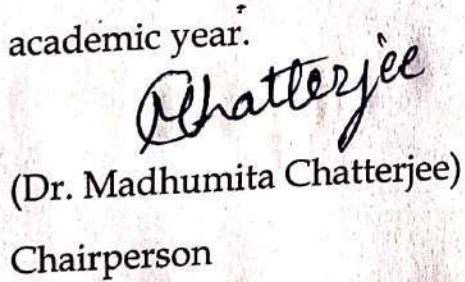 academic year.
Chatterjee
(Dr. Madhumita Chatterjee)
Chairperson